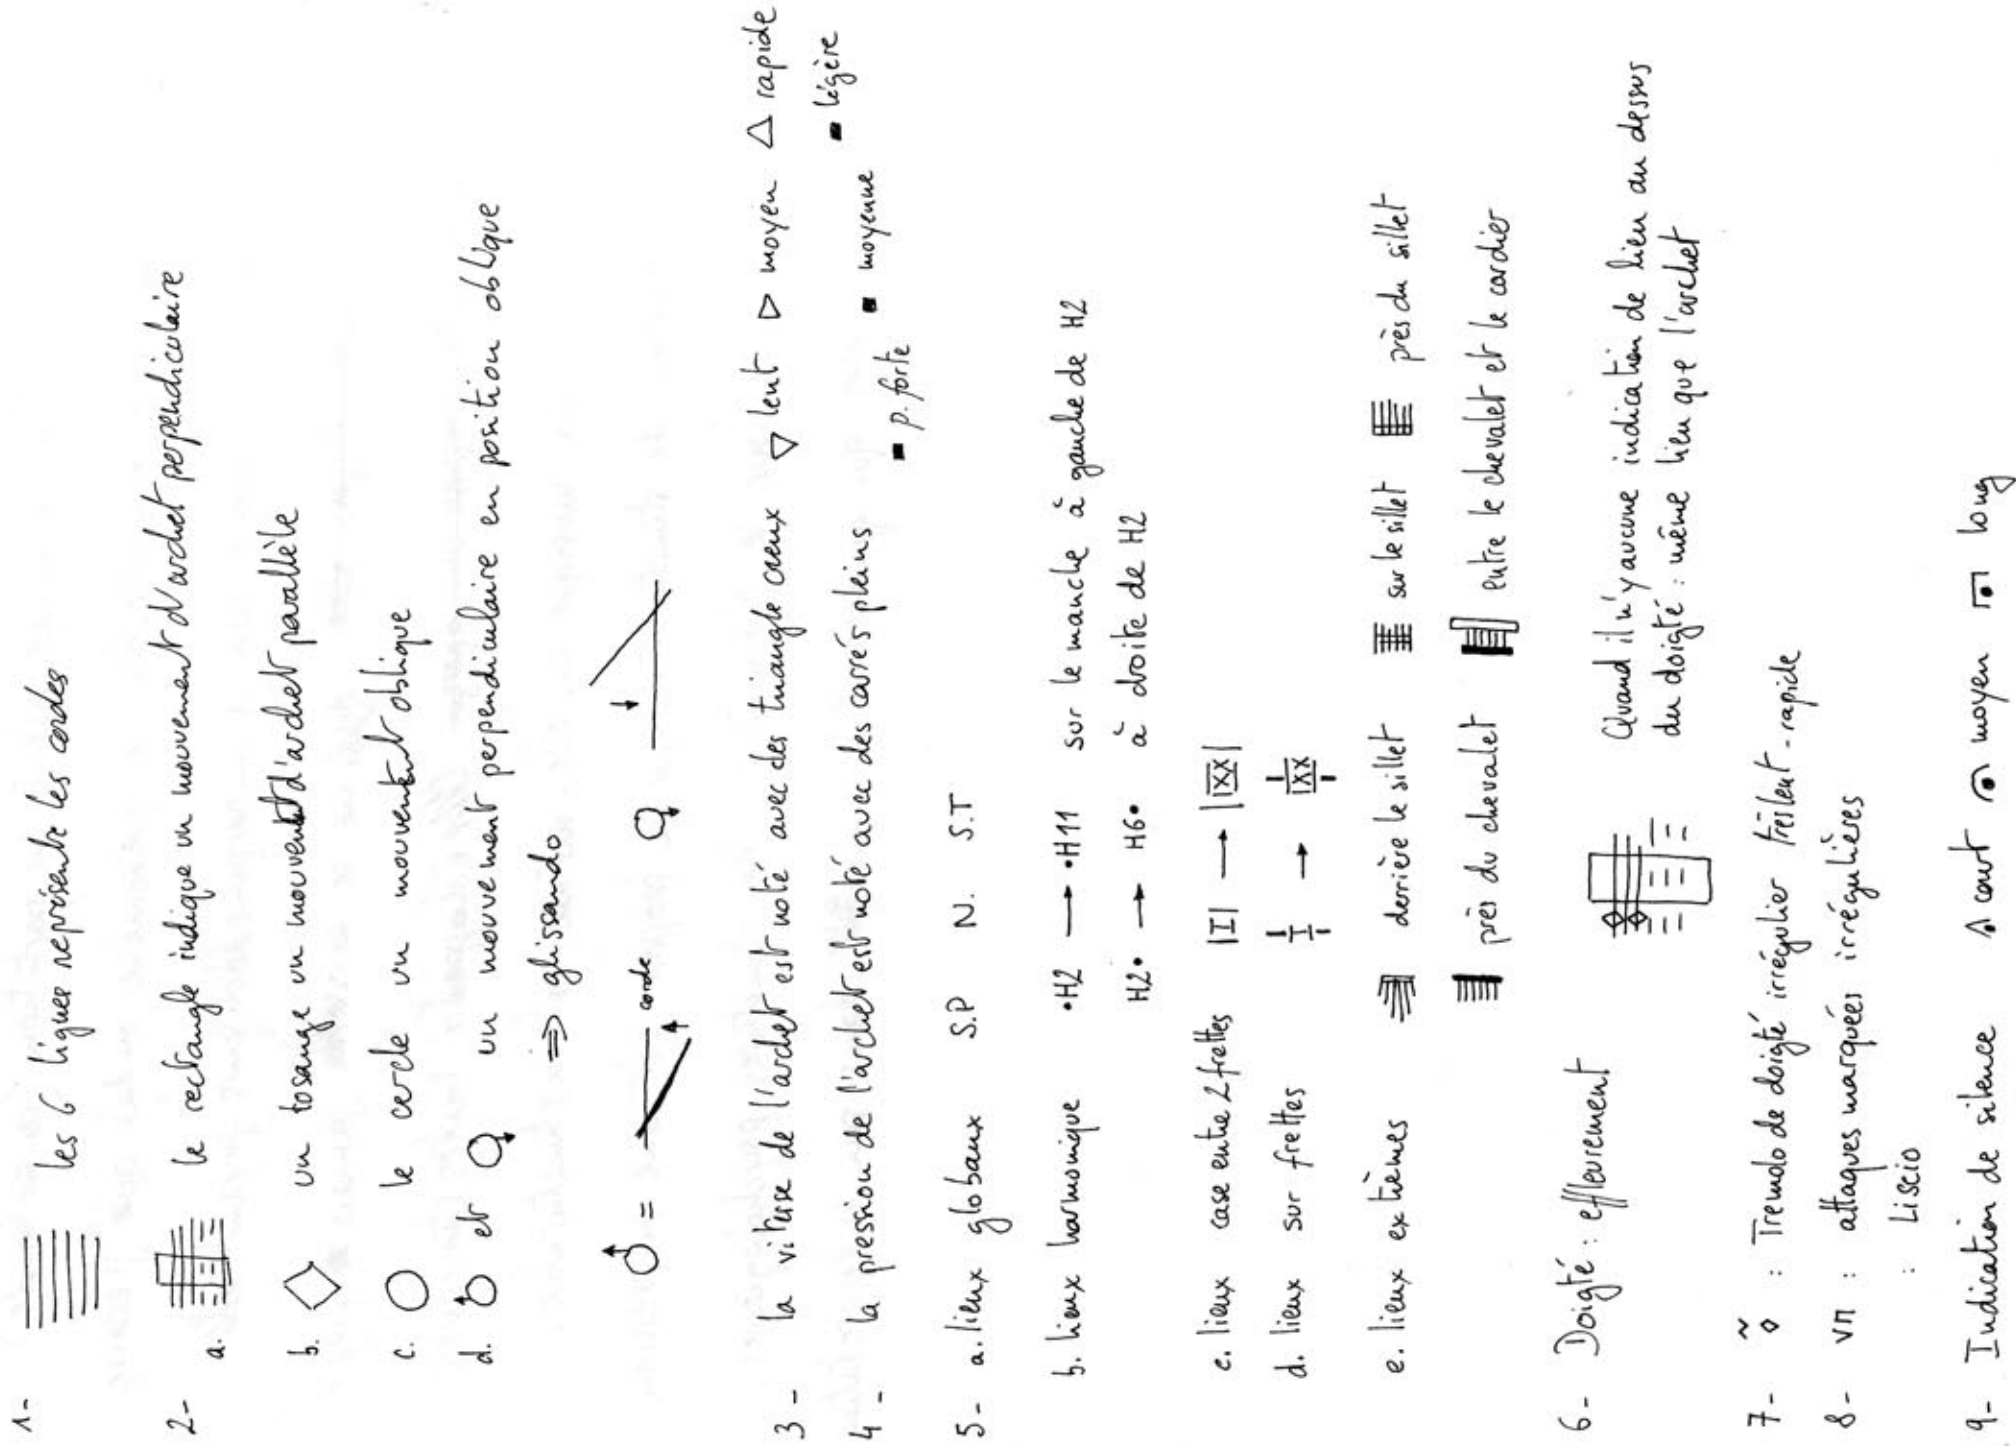 1- les 6 lignes représente les cordes
2- a. le rectangle indique un mouvement d'archet perpendiculaire
b. un losange un mouvement d'archet parallèle
c. le cercle un mouvement oblique
d. et un mouvement perpendiculaire en position oblique
⇒ glissando
= corde
3- la vitesse de l'archet est noté avec des triangle creux ▽ lent ▷ moyen △ rapide
4- la pression de l'archet est noté avec des carrés pleins ■ p. forte ■ moyenne ■ légère
5- a. lieux globaux S.P N. S.T
b. lieux harmonique •H2 → •H11 sur le manche à gauche de H2
H2• → H6• à droite de H2
c. lieux case entre 2 frettes |I| → |IXX|
d. lieux sur frettes I → IXX
e. lieux extrèmes derrière le sillet sur le sillet près du sillet
près du chevalet entre le chevalet et le cordier
6- Doigté : effleurement Quand il n'y aucune indication de lieu au dessus
du doigté : même lieu que l'archet
7- ◇ : Tremolo de doigté irrégulier très lent - rapide
8- V П : attaques marquées irrégulières
: Liscio
9- Indication de silence court moyen long